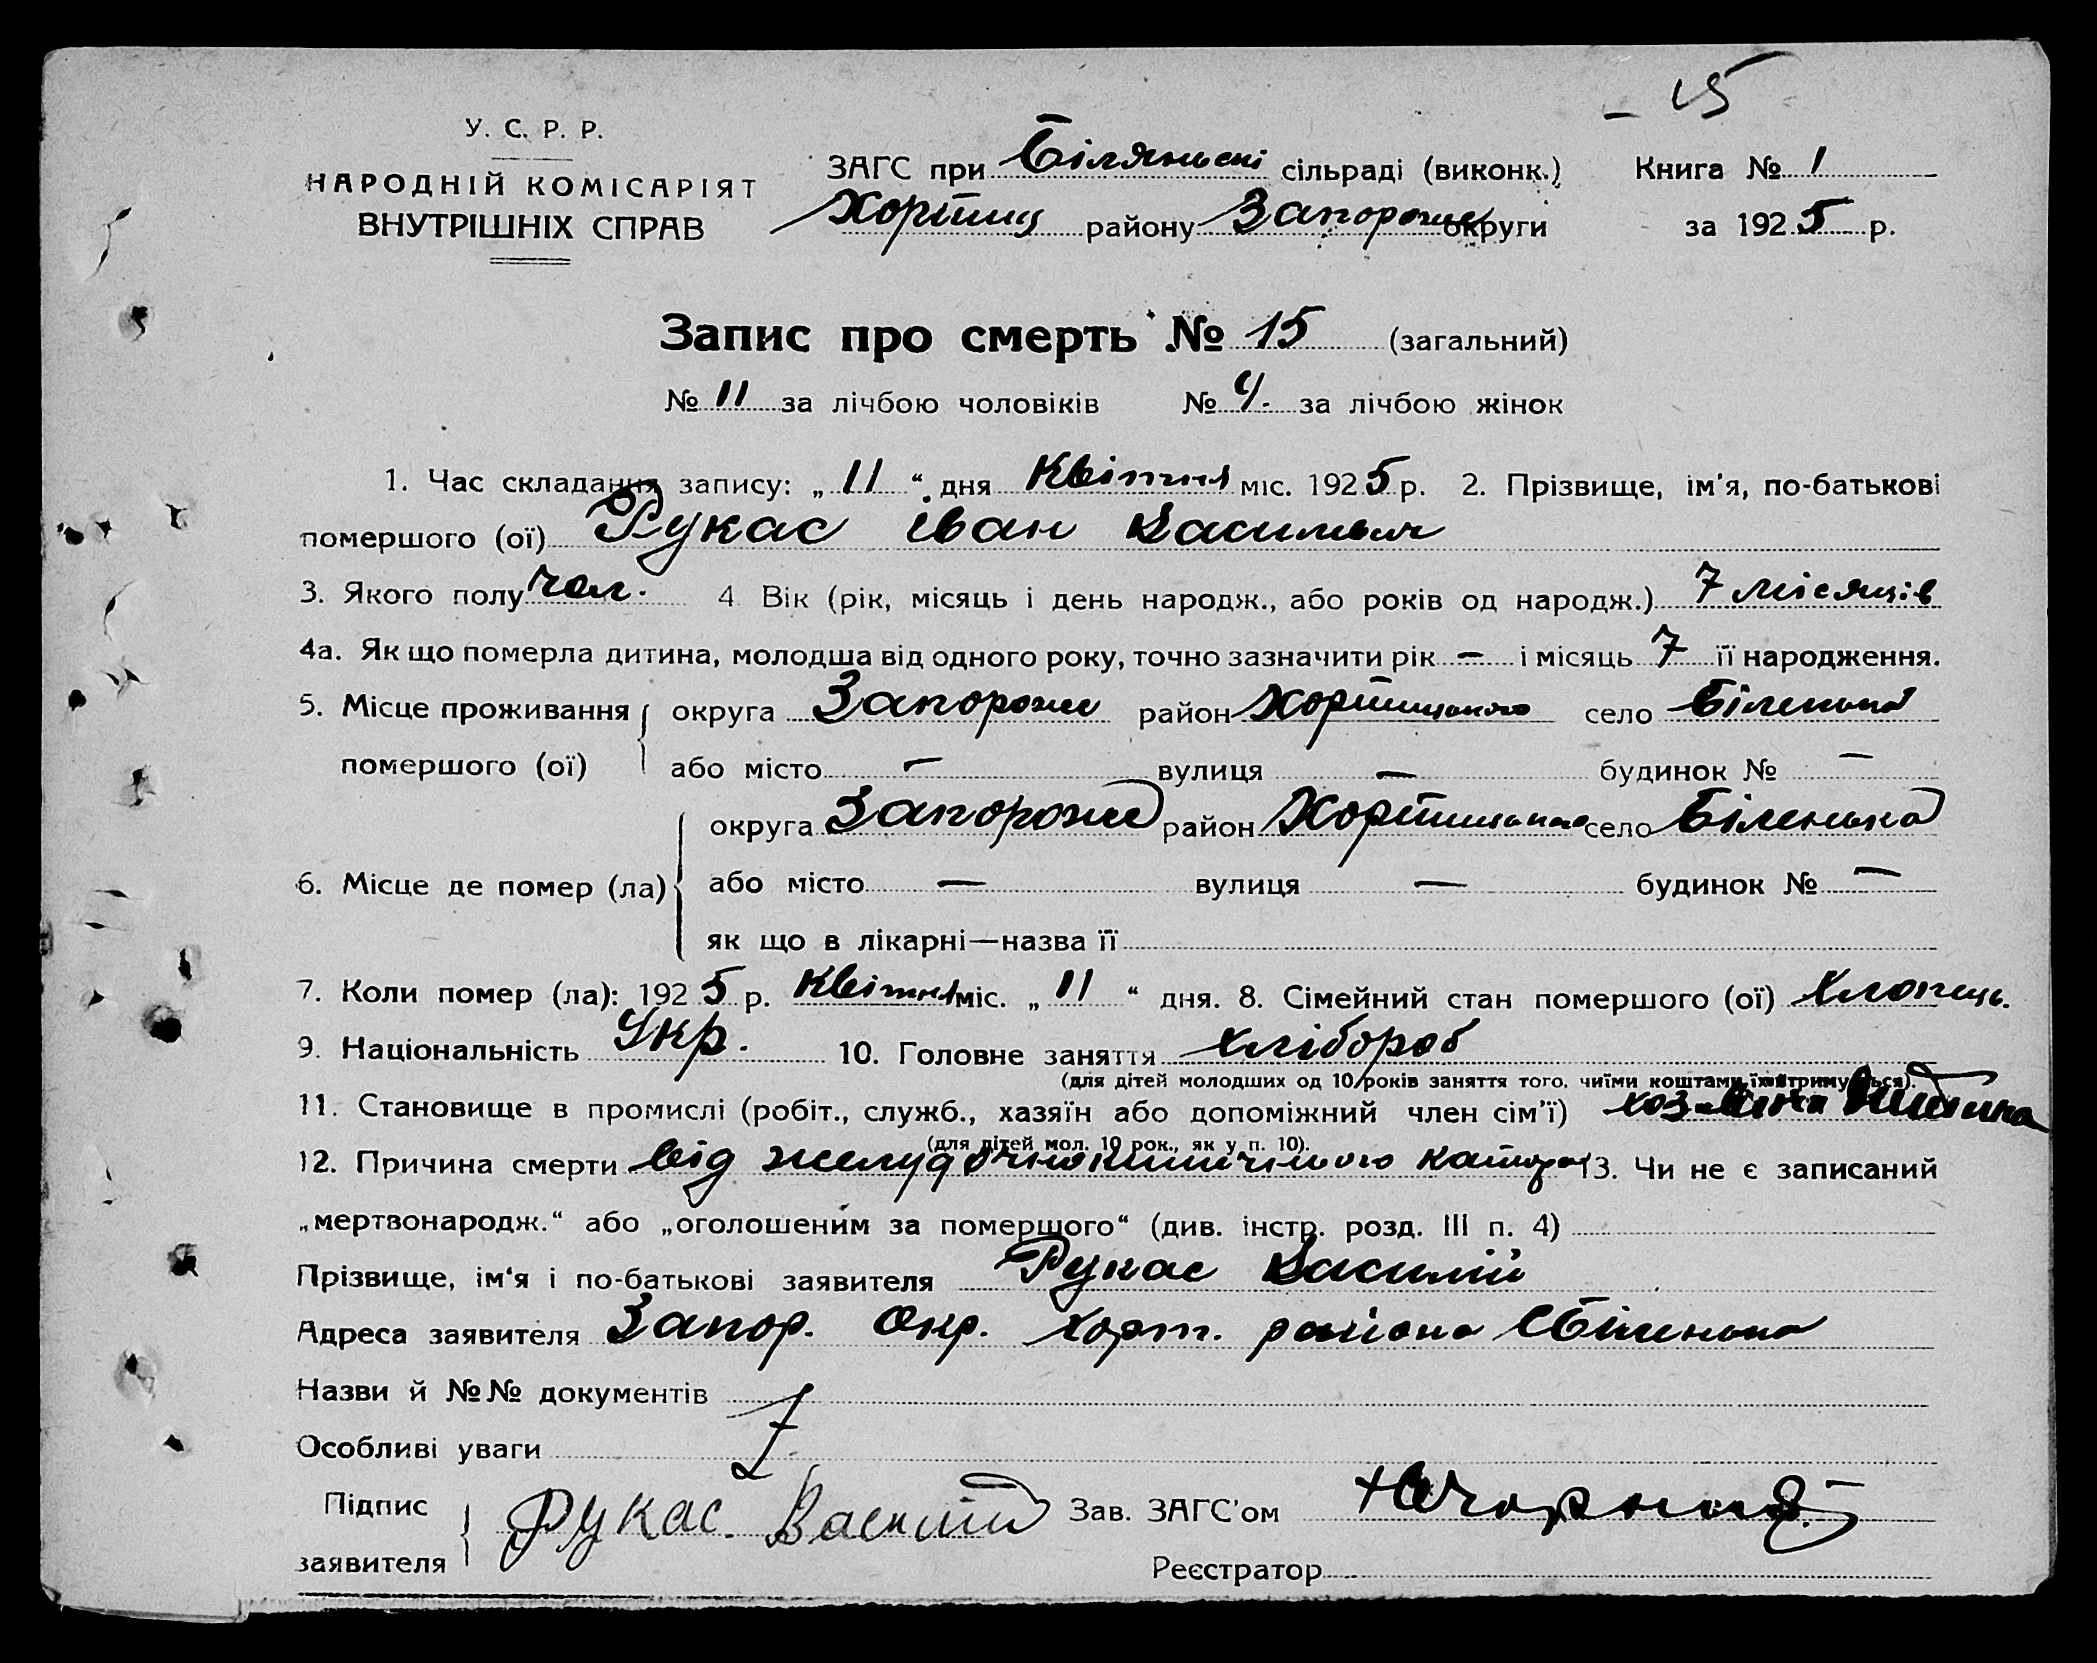 - 15
У. С. Р. Р.
НАРОДНІЙ КОМІСАРІЯТ
ВНУТРІШНІХ СПРАВ
ЗАГС при Біляньскі сільраді (виконк.) Книга № 1
Хортиц району Запорожс округи за 1925 р.
Запис про смерть № 15 (загальний)
№ 11 за лічбою чоловіків № 4. за лічбою жінок
1. Час складання запису: „11“ дня Квітня міс. 1925 р. 2. Прізвище, ім'я, по-батькові
помершого (ої) Рукас іван Васильвич
3. Якого полу чол. 4 Вік (рік, місяць і день народж., або років од народж.) 7 місяців
4а. Як що померла дитина, молодша від одного року, точно зазначити рік — і місяць 7 її народження.
5. Місце проживання округа Запорожс район Хортицького село Біленька
помершого (ої) або місто — вулиця — будинок № —
округа Запорожс район Хортицького село Біленька
6. Місце де помер (ла) або місто — вулиця — будинок № —
як що в лікарні—назва її
7. Коли помер (ла): 1925 р. Квітня міс. „11“ дня. 8. Сімейний стан помершого (ої) Хлопець.
9. Національність Укр. 10. Головне заняття хлібороб
(для дітей молодших од 10 років заняття того, чиїми коштами їх утримується).
11. Становище в промислі (робіт., служб., хазяїн або допоміжний член сім'ї) дитина
(для дітей мол. 10 рок., як у п. 10).
12. Причина смерти від желудочнокишечного катара 13. Чи не є записаний
„мертвонародж.“ або „оголошеним за помершого“ (див. інстр. розд. III п. 4)
Прізвище, ім'я і по-батькові заявителя Рукас Василій
Адреса заявителя Запор. Окр. Хорт. района с Біленька
Назви й №№ документів
Особливі уваги
Підпис Рукас. Василий Зав. ЗАГС'ом
заявителя Реєстратор